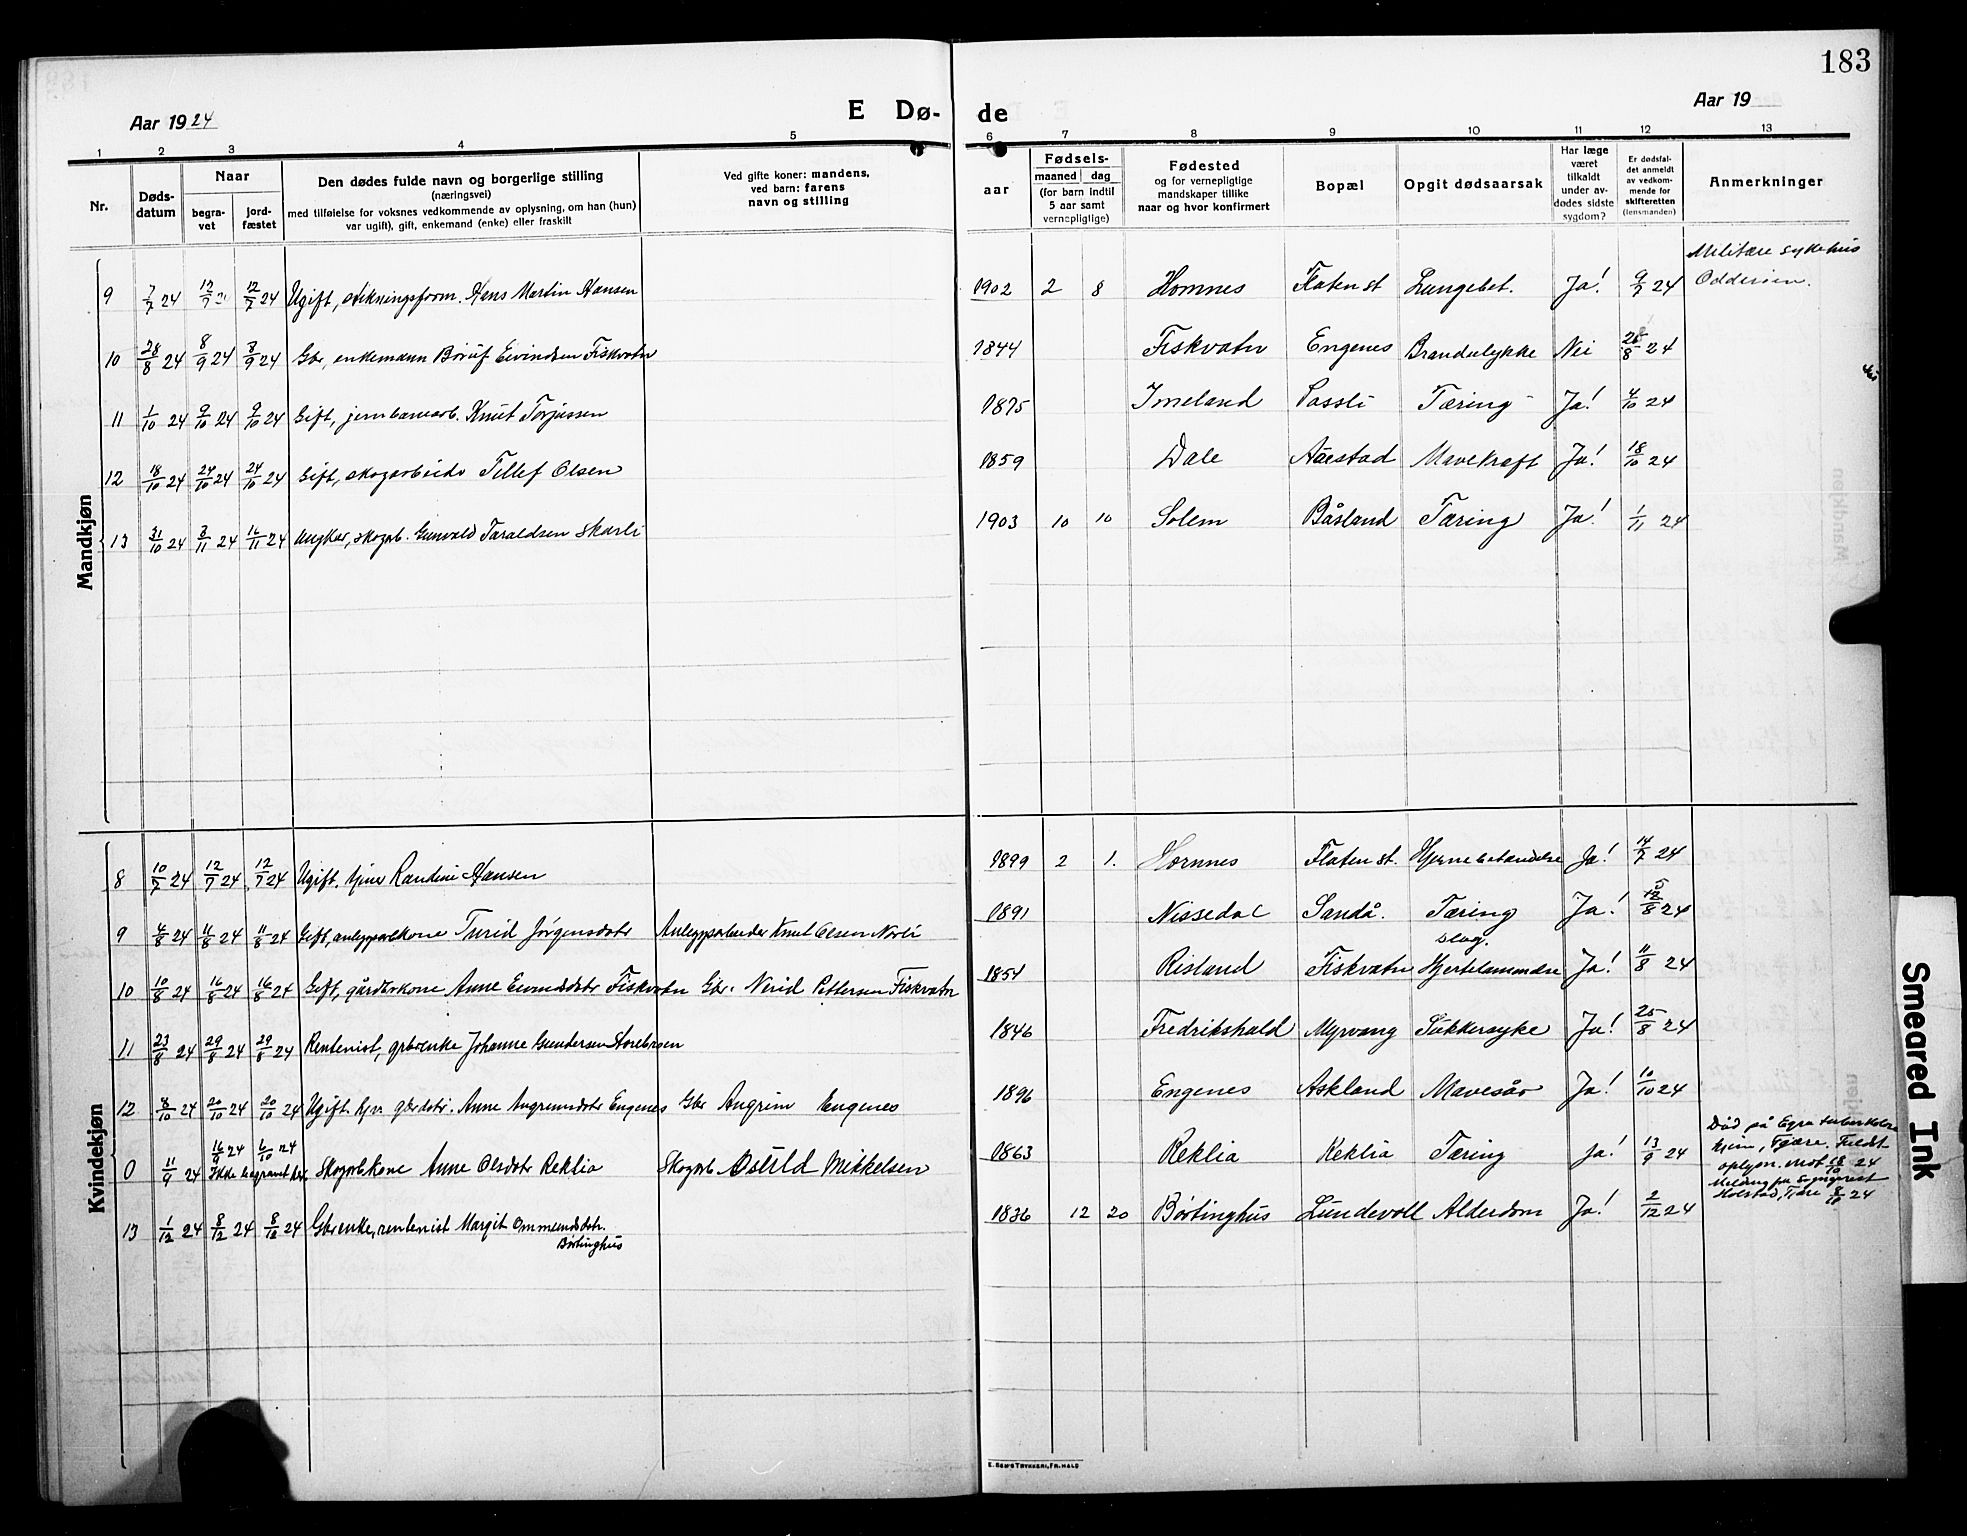 183
Aar 1924
E Dø-
de
Aar 19
1 2 3 4 5 6 7 8 9 10 11 12 13
Nr.
Døds-
datum
Naar
begra-
vet
jord-
fæstet
Den dødes fulde navn og borgerlige stilling
(næringsvei)
med tilføielse for voksnes vedkommende av oplysning, om han (hun)
var ugift), gift, enkemand (enke) eller fraskilt
Ved gifte koner: mandens,
ved barn: farens
navn og stilling
aar
Fødsels-
maaned dag
(for barn indtil
5 aar samt
vernepligtige)
Fødested
og for vernepligtige
mandskaper tillike
naar og hvor konfirmert
Bopæl
Opgit dødsaarsak
Har læge
været
tilkaldt
under av-
dødes sidste
sygdom?
Er dødsfal-
det anmeldt
av vedkom-
mende for
skifteretten
(lensmanden)
Anmerkninger
Mandkjøn
9 7/7 24 12/7 12/7 24 Ugift, Hans Martin Hansen 1902 2 8 Hornnes Flaten st Lungebet. Ja! 9/7 24 Militære sykehus
Odderøen.
10 28/8 24 8/9 24 8/9 24 Gbr, enkemann Eivindsen Fiskvatn 1844 Fiskvatn Engenes Brandulykke Nei 24
11 1/10 24 9/10 24 9/10 24 Gift, jernbanearb. Knut Torjussen 1875 Imeland Tæring Ja! 4/10 24
12 18/10 24 24/10 24 24/10 24 Gift, skogarbeider Tellef Olsen 1859 Dale Mavekræft Ja! 18/10 24
13 31/10 24 3/11 24 16/11 24 Ungkar, skogarb. Gunvald Taraldsen Skarli 1903 10 10 Solem Båsland Tæring Ja! 1/11 24
Kvindekjøn
8 10/7 24 12/7 24 12/7 24 Ugift, tjener Randine Hansen 1899 2 1. Hornnes Flaten st. Hjernebetændelse Ja! 14/7 24
9 6/8 24 11/8 24 11/8 24 Gift, anleggsarbkone Turid Jörgensdatr Anleggsarbeider Knut Olsen Norli 1891 Nissedal Sandå. Tæring Ja! 24
10 10/8 24 16/8 24 16/8 24 Gift, gårdbrkone Anne Eivindsdatr Fiskvatn Gbr. Nerid Pettersen Fiskvatn 1854 Risland Fiskvatn slag. Hjertelammelse Ja! 11/8 24
11 23/8 24 29/8 24 29/8 24 Rentenist, Johanne Gundersen 1846 Fredrikshald Myrvang Sukkersyke Ja! 25/8 24
12 8/10 24 20/10 24 20/10 24 Ugift Anne Angrimsdatr Engenes Gbr Angrim Engenes 1896 Engenes Askland Mavesår Ja! 10/10 24
0 11/9 24 16/9 24 6/10 24
Ikke begravet her. Skogarbkone Anne Olsdatr Reklia Skogarb Østuld Mikkelsen 1863 Reklia Reklia Tæring Ja! 13/9 24 Död på Egra tuberkulose
hjem, Fjære. Fuldst.
oplysn. mot. 18/10 24
Melding fra Sogneprest
Holstad, Fjære 8/10 24
13 1/12 24 8/12 24 8/12 24 Gbrenke, rentenist Margit Ommundsdtr.
Børtinghus 1836 12 20 Børtinghus Lundevoll Alderdom Ja! 2/12 24
E. SEM'S TRYKKERI, FR.HALD
Smeared Ink